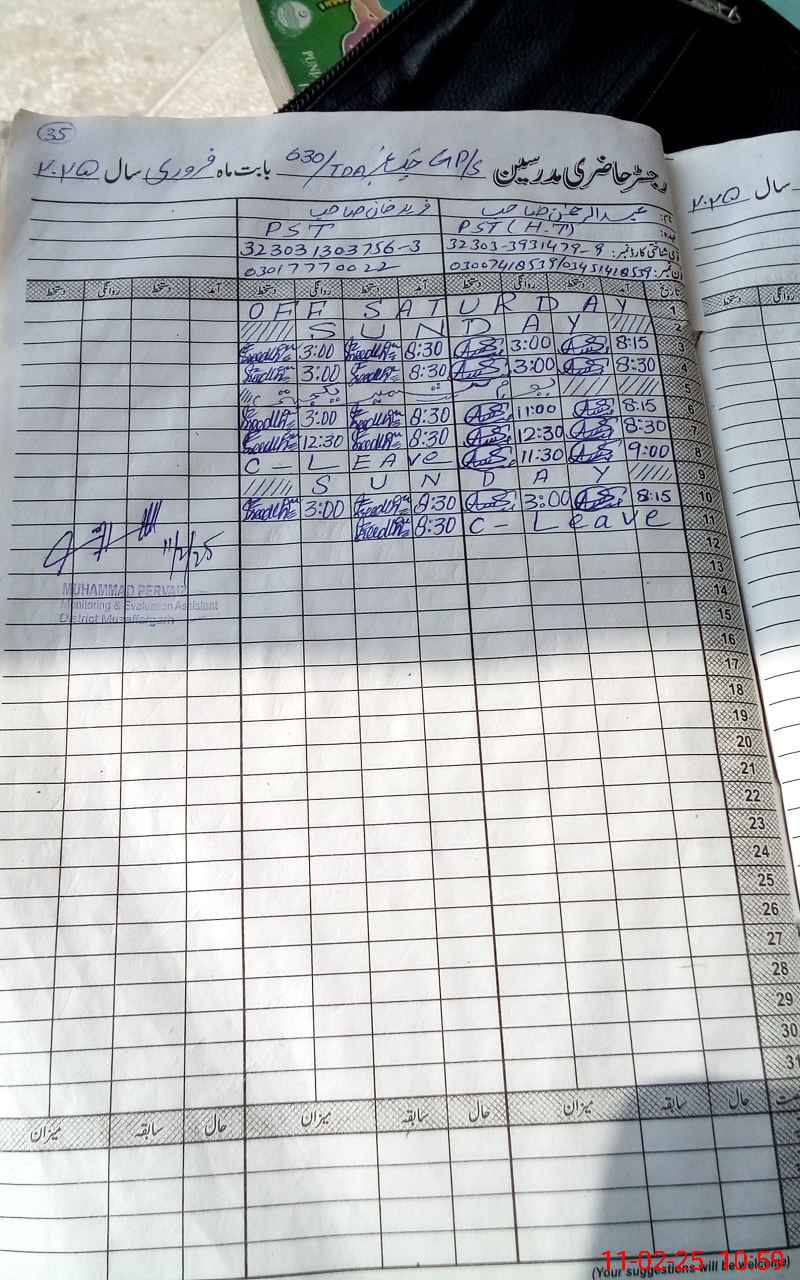 35
رجسٹر حاضری مدرسین GP/S چک نمبر 630/TDA بابت ماہ فروری سال ۲۰۲۵
سال ۲۰۲۵
نام: عبدالرحمٰن صاحب فرید خان صاحب
عہدہ: PST (H.T) PST
قومی شناختی کارڈ نمبر: 32303-3931479-9 323031303756-3
فون نمبر: 03067418539/03451418539 03017770022
تاریخ آمد دستخط روانگی دستخط آمد دستخط روانگی دستخط آمد دستخط روانگی دستخط
1 OFF SATURDAY
2 SUNDAY
3 8:15 3:00 8:30 3:00
4 8:30 3:00 8:30 3:00
5 یوم کشمیر
6 8:15 11:00 8:30 3:00
7 8:30 12:30 8:30 12:30
8 9:00 11:30 C-LEAve
9 SUNDAY
10 8:15 3:00 8:30 3:00
11 C-Leave 8:30
12
13
14
15
16
17
18
19
20
21
22
23
24
25
26
27
28
29
30
31
11/2/25
MUHAMMAD PERVAIZ
Monitoring & Evaluation Assistant
District Muzaffargarh
حال سابقہ میزان حال سابقہ میزان حال سابقہ میزان
(Your suggestions will be welcome)
11-02-25 10:59
PUNJ